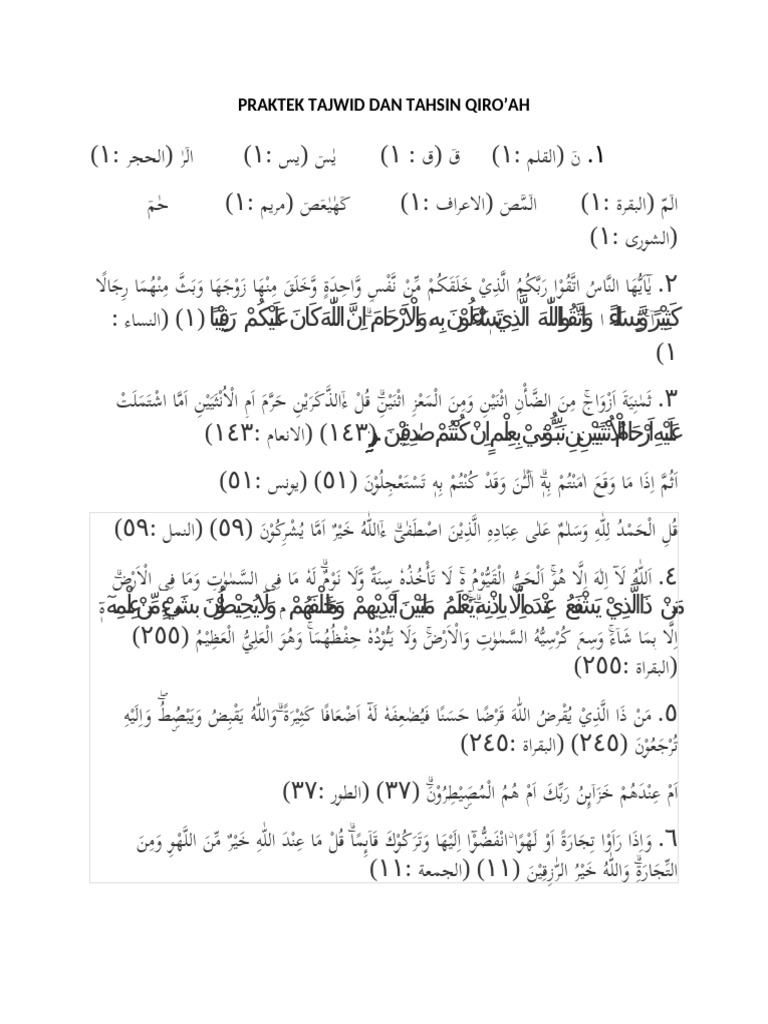 PRAKTEK TAJWID DAN TAHSIN QIRO’AH
١. نۤ (القلم :١) قۤ (ق : ١) يٰسۤ (يس :١) الۤرٰ (الحجر :١)
الۤمّۤ (البقرة :١) الۤمّۤصۤ (الاعراف :١) كۤهٰيٰعۤصۤ (مريم :١) حٰمۤ
(الشورى :١)
٢. يٰٓاَيُّهَا النَّاسُ اتَّقُوْا رَبَّكُمُ الَّذِيْ خَلَقَكُمْ مِّنْ نَّفْسٍ وَّاحِدَةٍ وَّخَلَقَ مِنْهَا زَوْجَهَا وَبَثَّ مِنْهُمَا رِجَالًا
كَثِيْرًا وَّنِسَاۤءً ۚ وَاتَّقُوا اللّٰهَ الَّذِيْ تَسَاۤءَلُوْنَ بِهٖ وَالْاَرْحَامَ ۗ اِنَّ اللّٰهَ كَانَ عَلَيْكُمْ رَقِيْبًا (١) (النساء :
١)
٣. ثَمٰنِيَةَ اَزْوَاجٍۚ مِنَ الضَّأْنِ اثْنَيْنِ وَمِنَ الْمَعْزِ اثْنَيْنِۗ قُلْ ءٰۤالذَّكَرَيْنِ حَرَّمَ اَمِ الْاُنْثَيَيْنِ اَمَّا اشْتَمَلَتْ
عَلَيْهِ اَرْحَامُ الْاُنْثَيَيْنِۗ نَبِّـُٔوْنِيْ بِعِلْمٍ اِنْ كُنْتُمْ صٰدِقِيْنَ (١٤٣) (الانعام :١٤٣)
اَثُمَّ اِذَا مَا وَقَعَ اٰمَنْتُمْ بِهٖۗ اٰۤلْـٰٔنَ وَقَدْ كُنْتُمْ بِهٖ تَسْتَعْجِلُوْنَ (٥١) (يونس :٥١)
قُلِ الْحَمْدُ لِلّٰهِ وَسَلٰمٌ عَلٰى عِبَادِهِ الَّذِيْنَ اصْطَفٰىۗ ءٰۤاللّٰهُ خَيْرٌ اَمَّا يُشْرِكُوْنَ (٥٩) (النمل :٥٩)
٤. اَللّٰهُ لَآ اِلٰهَ اِلَّا هُوَۚ اَلْحَيُّ الْقَيُّوْمُ ەۚ لَا تَأْخُذُهٗ سِنَةٌ وَّلَا نَوْمٌۗ لَهٗ مَا فِى السَّمٰوٰتِ وَمَا فِى الْاَرْضِۗ
مَنْ ذَا الَّذِيْ يَشْفَعُ عِنْدَهٗٓ اِلَّا بِاِذْنِهٖۗ يَعْلَمُ مَا بَيْنَ اَيْدِيْهِمْ وَمَا خَلْفَهُمْۚ وَلَا يُحِيْطُوْنَ بِشَيْءٍ مِّنْ عِلْمِهٖٓ
اِلَّا بِمَا شَاۤءَۚ وَسِعَ كُرْسِيُّهُ السَّمٰوٰتِ وَالْاَرْضَۚ وَلَا يَـُٔوْدُهٗ حِفْظُهُمَاۚ وَهُوَ الْعَلِيُّ الْعَظِيْمُ (٢٥٥)
(البقراة :٢٥٥)
٥. مَنْ ذَا الَّذِيْ يُقْرِضُ اللّٰهَ قَرْضًا حَسَنًا فَيُضٰعِفَهٗ لَهٗٓ اَضْعَافًا كَثِيْرَةً ۗوَاللّٰهُ يَقْبِضُ وَيَبْصُۣطُۖ وَاِلَيْهِ
تُرْجَعُوْنَ (٢٤٥) (البقراة :٢٤٥)
اَمْ عِنْدَهُمْ خَزَاۤىِٕنُ رَبِّكَ اَمْ هُمُ الْمُصَۣيْطِرُوْنَۗ (٣٧) (الطور :٣٧)
٦. وَاِذَا رَاَوْا تِجَارَةً اَوْ لَهْوًا ۨانْفَضُّوْٓا اِلَيْهَا وَتَرَكُوْكَ قَاۤىِٕمًاۗ قُلْ مَا عِنْدَ اللّٰهِ خَيْرٌ مِّنَ اللَّهْوِ وَمِنَ
التِّجَارَةِۗ وَاللّٰهُ خَيْرُ الرّٰزِقِيْنَ (١١) (الجمعة :١١)